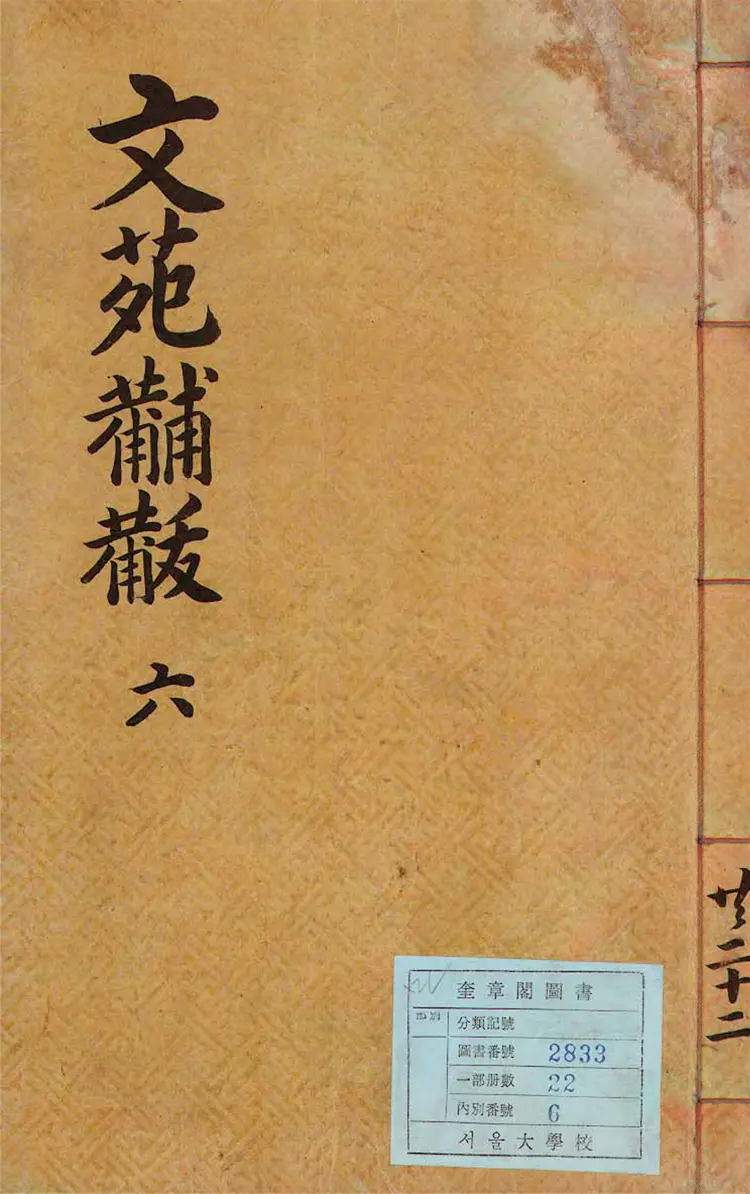 文苑黼黻 六
共二十二
奎章閣圖書
部別
分類記號
圖書番號 2833
一部册數 22
內別番號 6
서울大學校